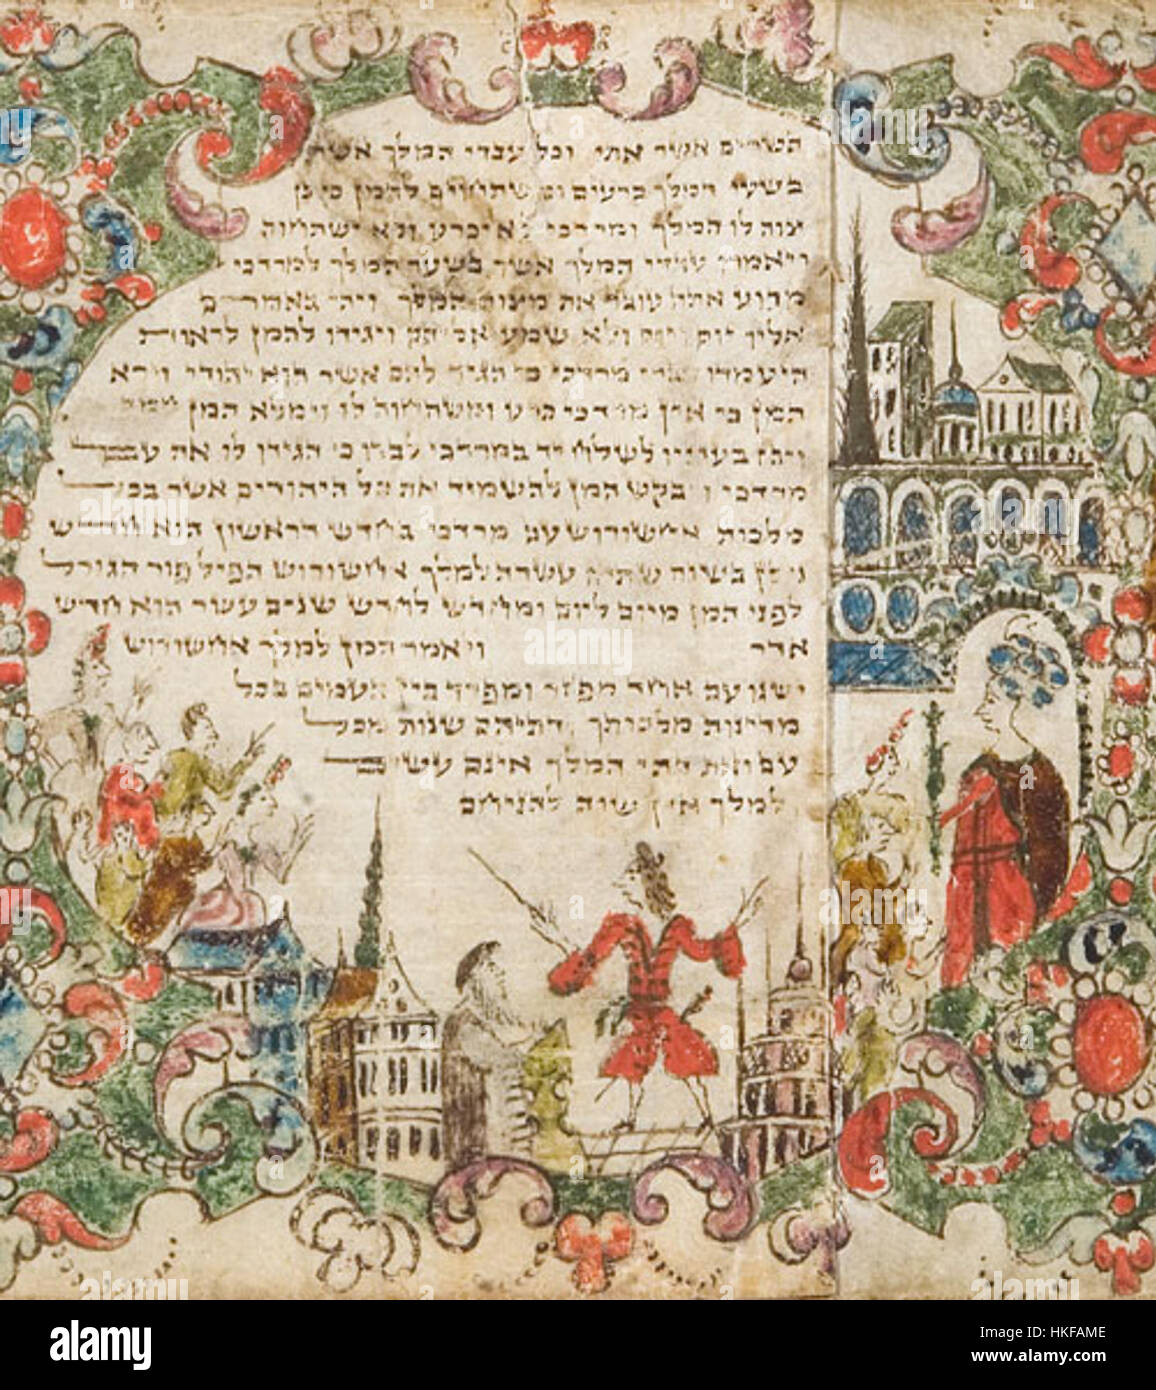 השרים אשר אתו וכל עבדי המלך אשר
בשער המלך כרעים ומשתחוים להמן כי כן
צוה לו המלך ומרדכי לא יכרע ולא ישתחוה
ויאמרו עבדי המלך אשר בשער המלך למרדכי
מדוע אתה עובר את מצות המלך ויהי באמרם
אליו יום ויום ולא שמע אליהם ויגידו להמן לראות
היעמדו דברי מרדכי כי הגיד להם אשר הוא יהודי וירא
המן כי אין מרדכי כרע ומשתחוה לו וימלא המן חמה
ויבז בעיניו לשלוח יד במרדכי לבדו כי הגידו לו את עם
מרדכי ויבקש המן להשמיד את כל היהודים אשר בכל
מלכות אחשורוש עם מרדכי בחדש הראשון הוא חדש
ניסן בשנת שתים עשרה למלך אחשורוש הפיל פור הגורל
לפני המן מיום ליום ומחדש לחדש שנים עשר הוא חדש
אדר ויאמר המן למלך אחשורוש
ישנו עם אחד מפזר ומפרד בין העמים בכל
מדינות מלכותך ודתיהם שנות מכל
עם ואת דתי המלך אינם עשים
ולמלך אין שוה להניחם
alamy
alamy
Image ID: HKFAME
www.alamy.com